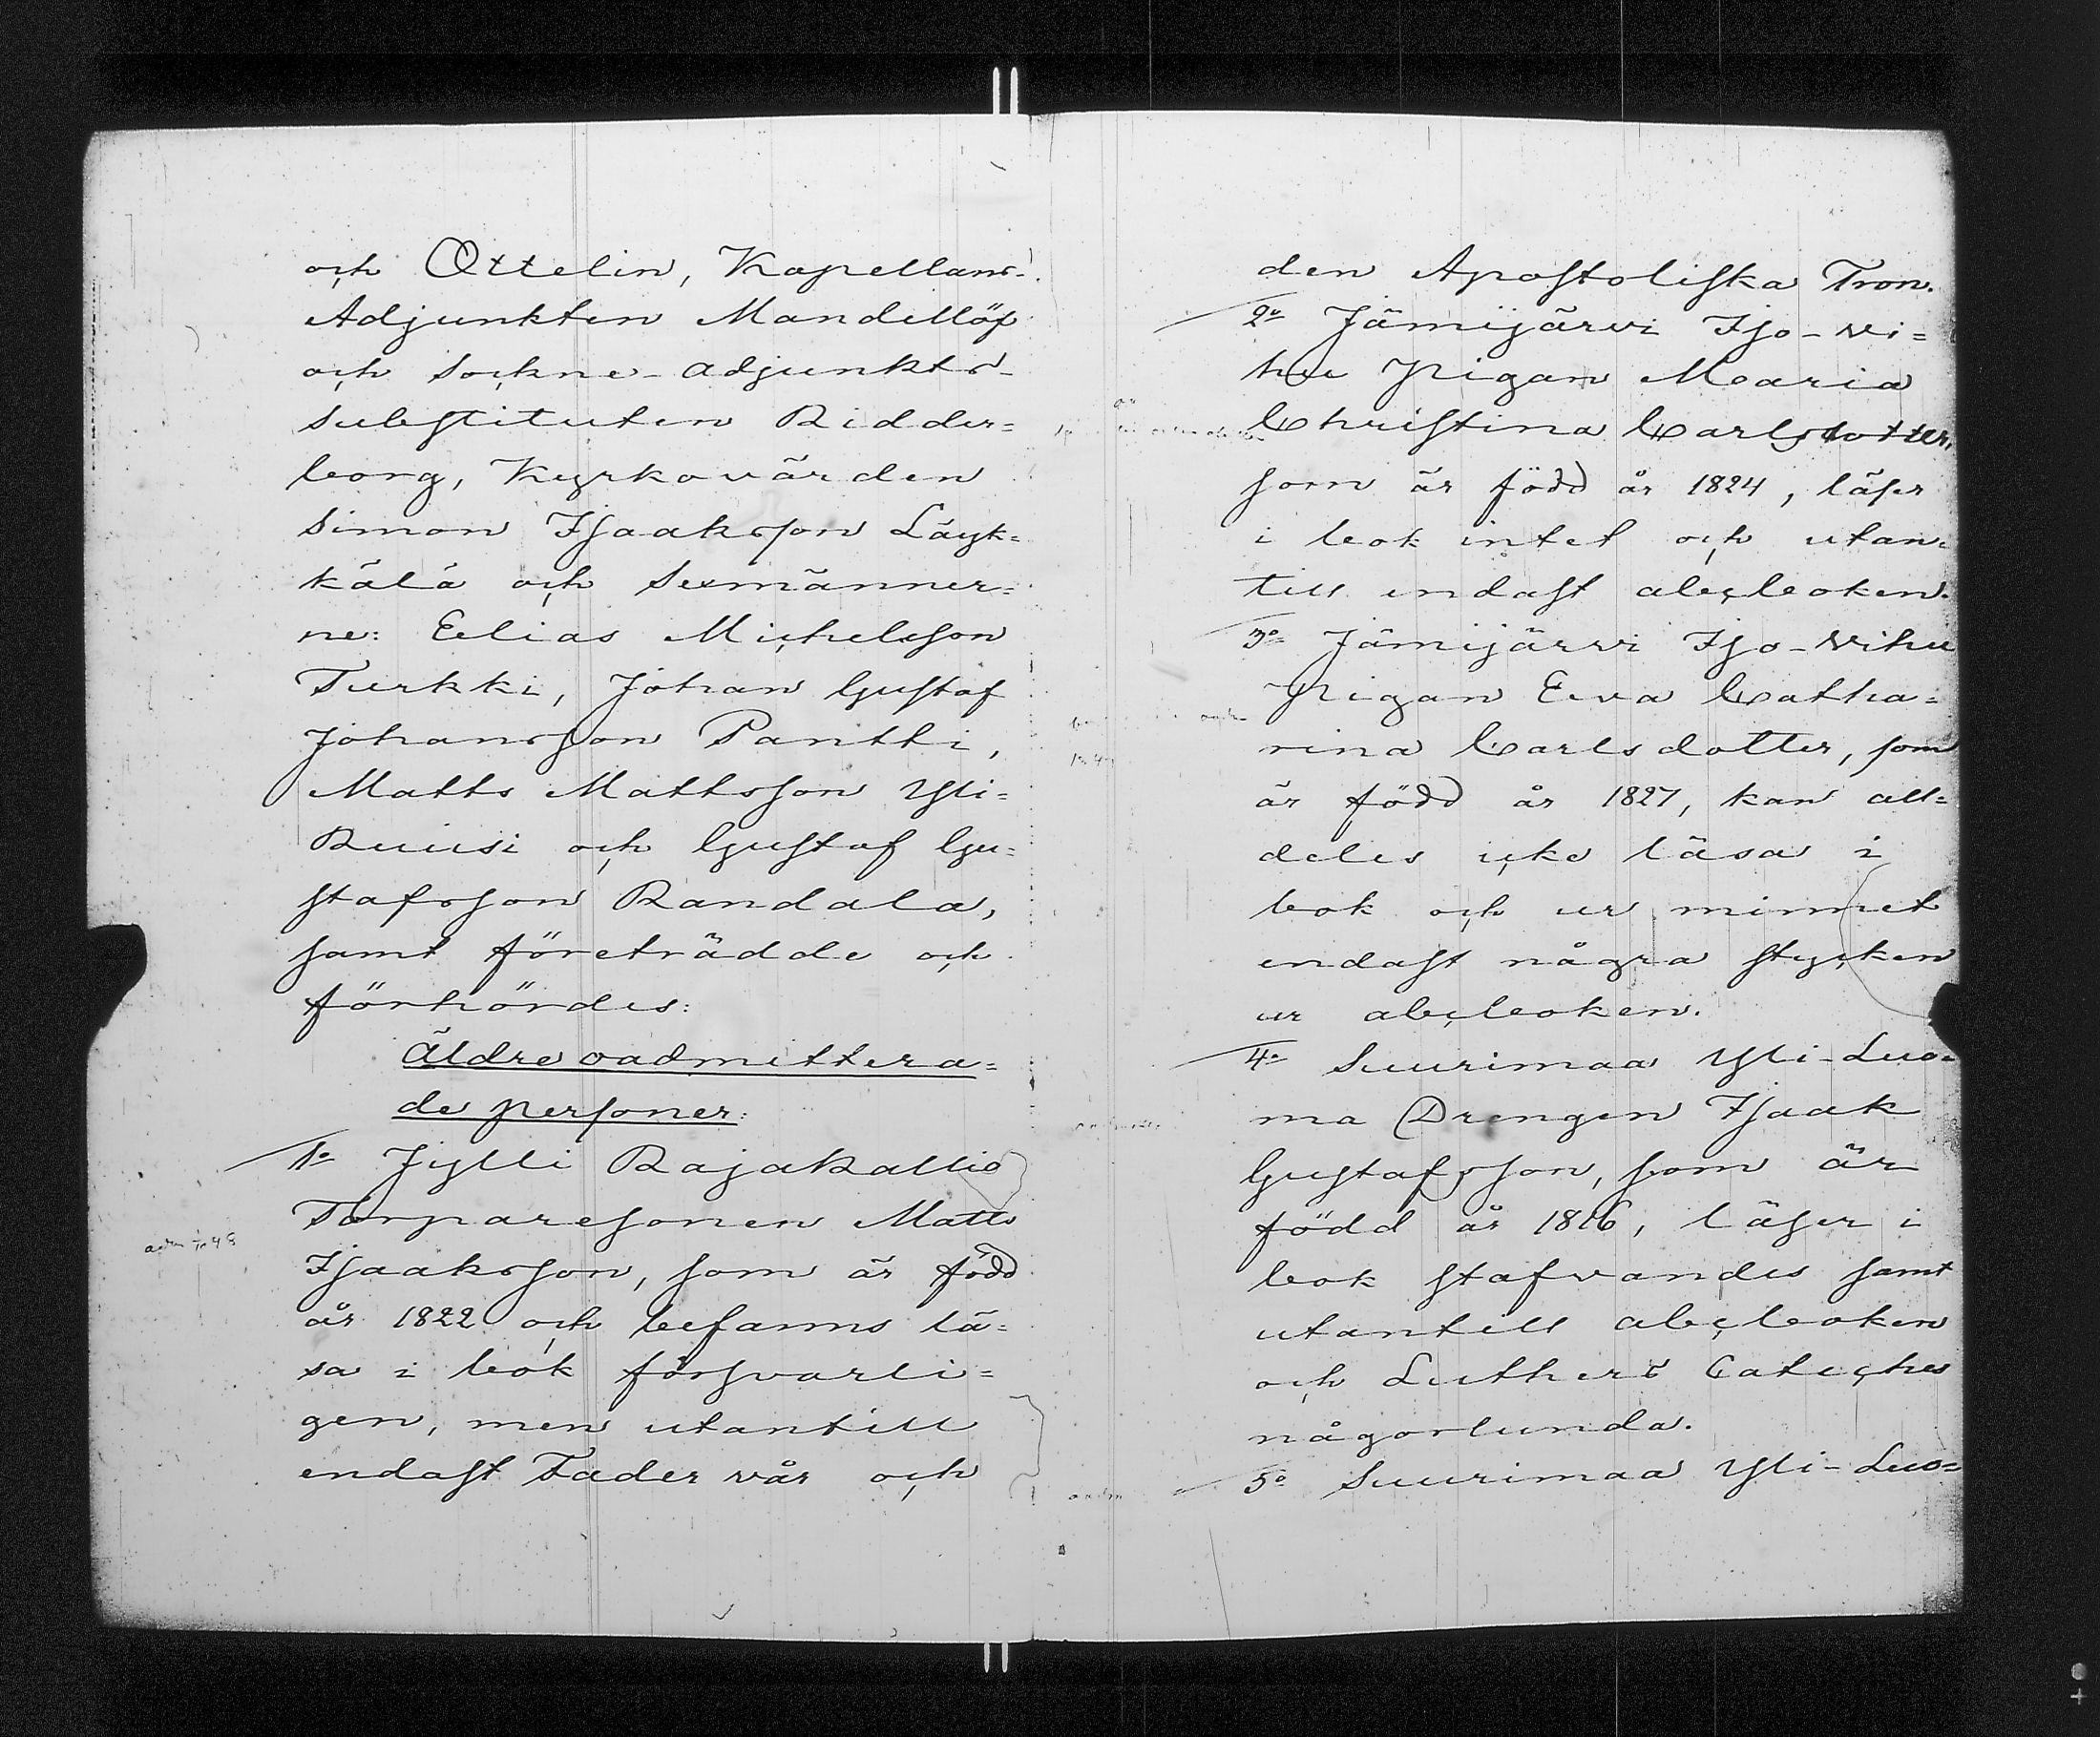 och Ottelin, Kapellans-
Adjunkten Mandellöf
och Sockne-adjunkts-
substituten Ridder=
borg, Kyrkovärden
Simon Isaaksson Läyk=
kälä och Sexmänner=
ne: Elias Michelsson
Turkki, Johan Gustaf
Johansson Pantti,
Matts Mattsson Yli=
Ruusi och Gustaf Gu=
stafsson Randala,
samt företrädde och
förhördes:
Äldre oadmittera=
de personer:
1º Jylli Rajakallio
Torparesonen Matts
Isaaksson, som är född
år 1822 och befanns lä=
sa i bok försvarli=
gen, men utantill
endast Fader vår och
den Apostoliska Tron.
2º Jämijärvi Iso-Vi=
hu Pigan Maria
Christina Carlsdotter,
som är född år 1824, läser
i bok intet och utan=
till endast abcboken.
3º Jämijärvi Iso-Vihu
Pigan Eva Catha=
rina Carlsdotter, som
är född år 1827, kan all=
deles icke läsa i
bok och ur minnet
endast några stycken
ur abcboken.
4º Suurimaa Yli-Luo=
ma Drengen Isaak
Gustafsson, som är
född år 1816, läser i
bok stafvandes samt
utantill abcboken
och Luthers Cateches
någorlunda.
5º Suurimaa Yli-Luo=